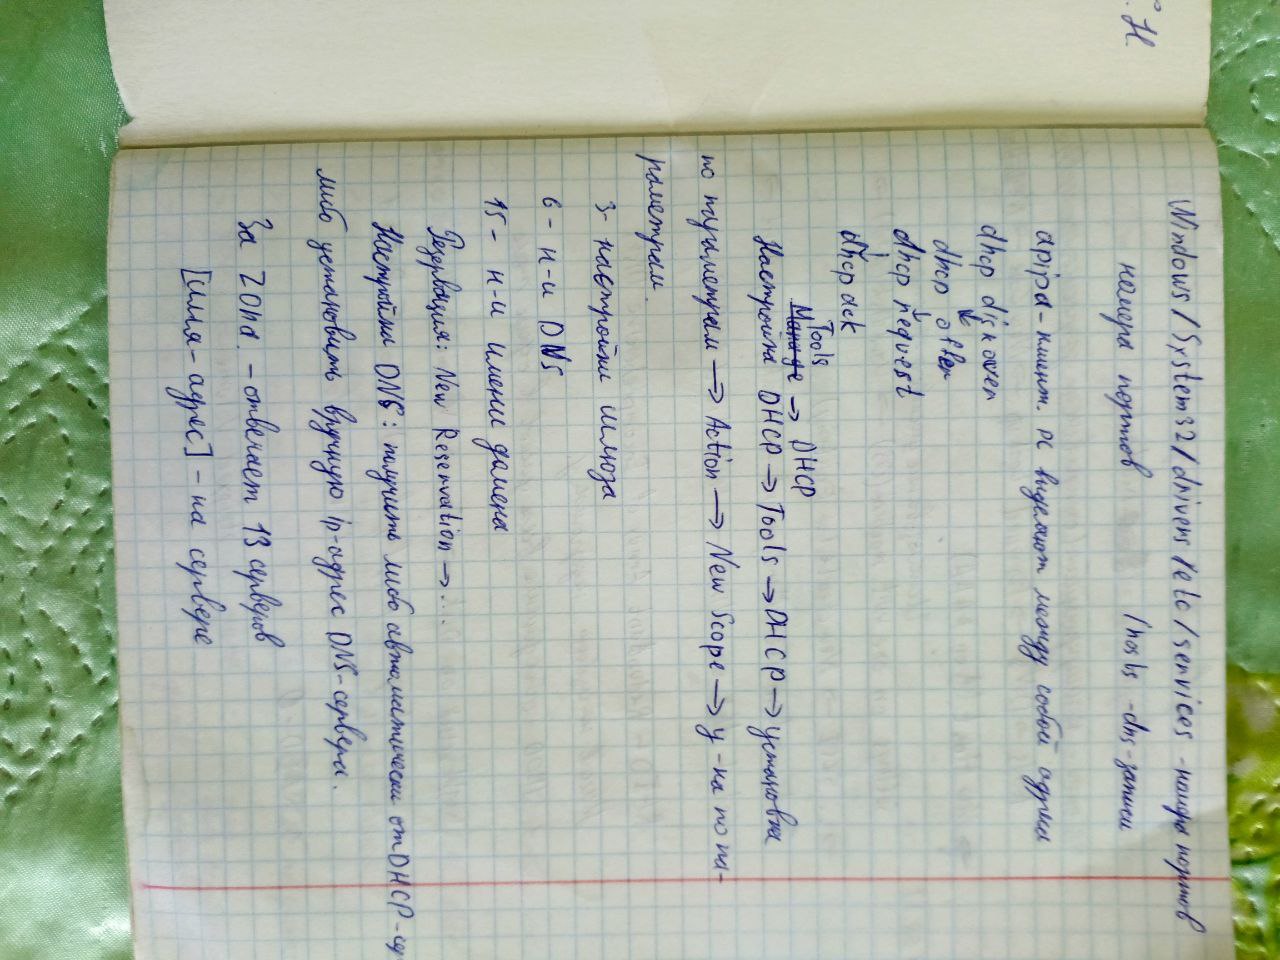 Windows/System32/drivers/etc/services - номера портов
номера портов /hosts - dns-записи
apipa - клиент. ж выделяют между собой адреса
dhcp diskover
↓
dhcp offer
↓
dhcp request
↓
dhcp ack
Manage Tools → DHCP
Настройка DHCP → Tools → DHCP → установка
по параметрам → Action → New Scope → у-ка по па-
раметрам.
3 - настройки шлюза
6 - н-и DNs
15 - н-и имени домена
Резервация: New Reservation → ...
Настройки DNS: получить либо автоматически от DHCP-ср
либо установить вручную ip-адрес DNS-сервера.
За Zona. - отвечает 13 серверов
[имя - адрес] - на сервере
. Н.